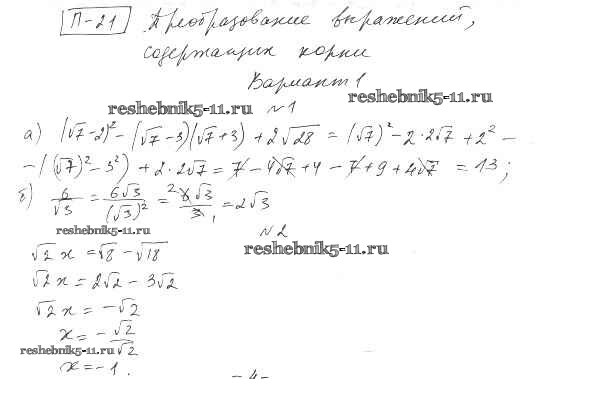 П-21 Преобразование выражений,
содержащих корни
Вариант 1
reshebnik5-11.ru №1 reshebnik5-11.ru
а) (√7-2)² - (√7-3)(√7+3) + 2√28 = (√7)² - 2·2√7 + 2² -
- ((√7)² - 3²) + 2·2√7 = 7 - 4√7 + 4 - 7 + 9 + 4√7 = 13;
б) 6/√3 = 6√3/(√3)² = ²6√3/3₁ = 2√3
reshebnik5-11.ru №2
√2 x = √8 - √18 reshebnik5-11.ru
√2 x = 2√2 - 3√2
√2 x = -√2
x = - √2/√2
reshebnik5-11.ru
x = -1.
- 4 -